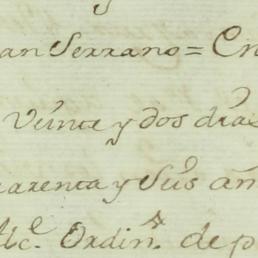 an Serrano = En
Veinte y dos dias
arenta y Seis añ
Alc.e Ordin.o de p